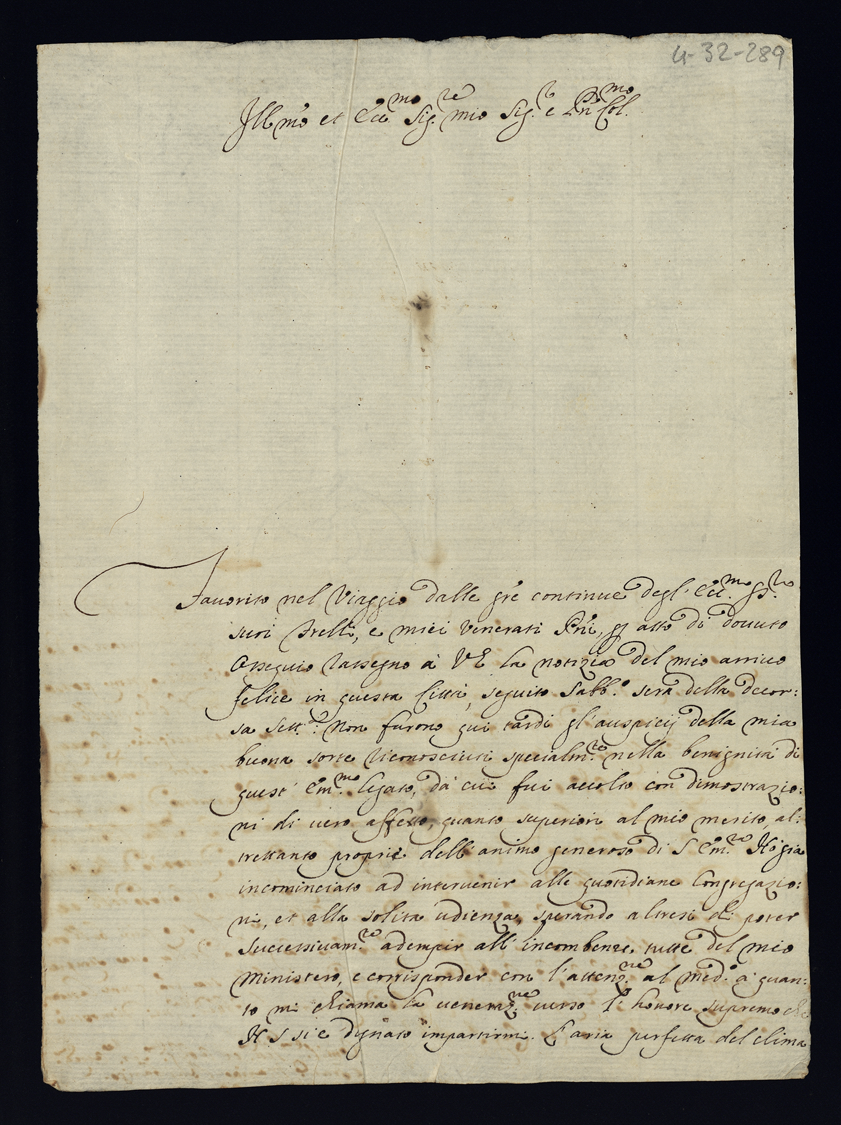 4-32-289
Ill:mo et Ecc:mo Sig:re mio Sig:r e Pn Col:mo
Favorito nel Viaggio dalle gre continue degl' Ecc:mi SS:ri
suoi frelli, e miei venerati Pni, p atto di dovuto
Ossequio rassegno à VE la notizia del mio arrivo
felice in questa Città, seguito Sabb:o sera della decor:
sa sett:a Non furono qui tardi gl'auspicij della mia
buona sorte riconosciuti specialm:te nella benignità di
quest' Em:mo Legato, da cui fui accolto con dimostrazio:
ni di vero affetto, quanto superiori al mio merito al:
trettanto proprie dell'animo generoso di S Em:za Hò già
incominciato ad intervenir alle quotidiane Congregazio:
ni, et alla solita udienza, sperando altresi di poter
successivam:te adempir all'incombenze tutte del mio
Ministero, e corrisponder con l'attenz:ne al med:o à quan:
to mi chiama la veneraz:ne verso l'honore supremo che
N. S si è degnato impartirmi. L'aria perfetta del clima